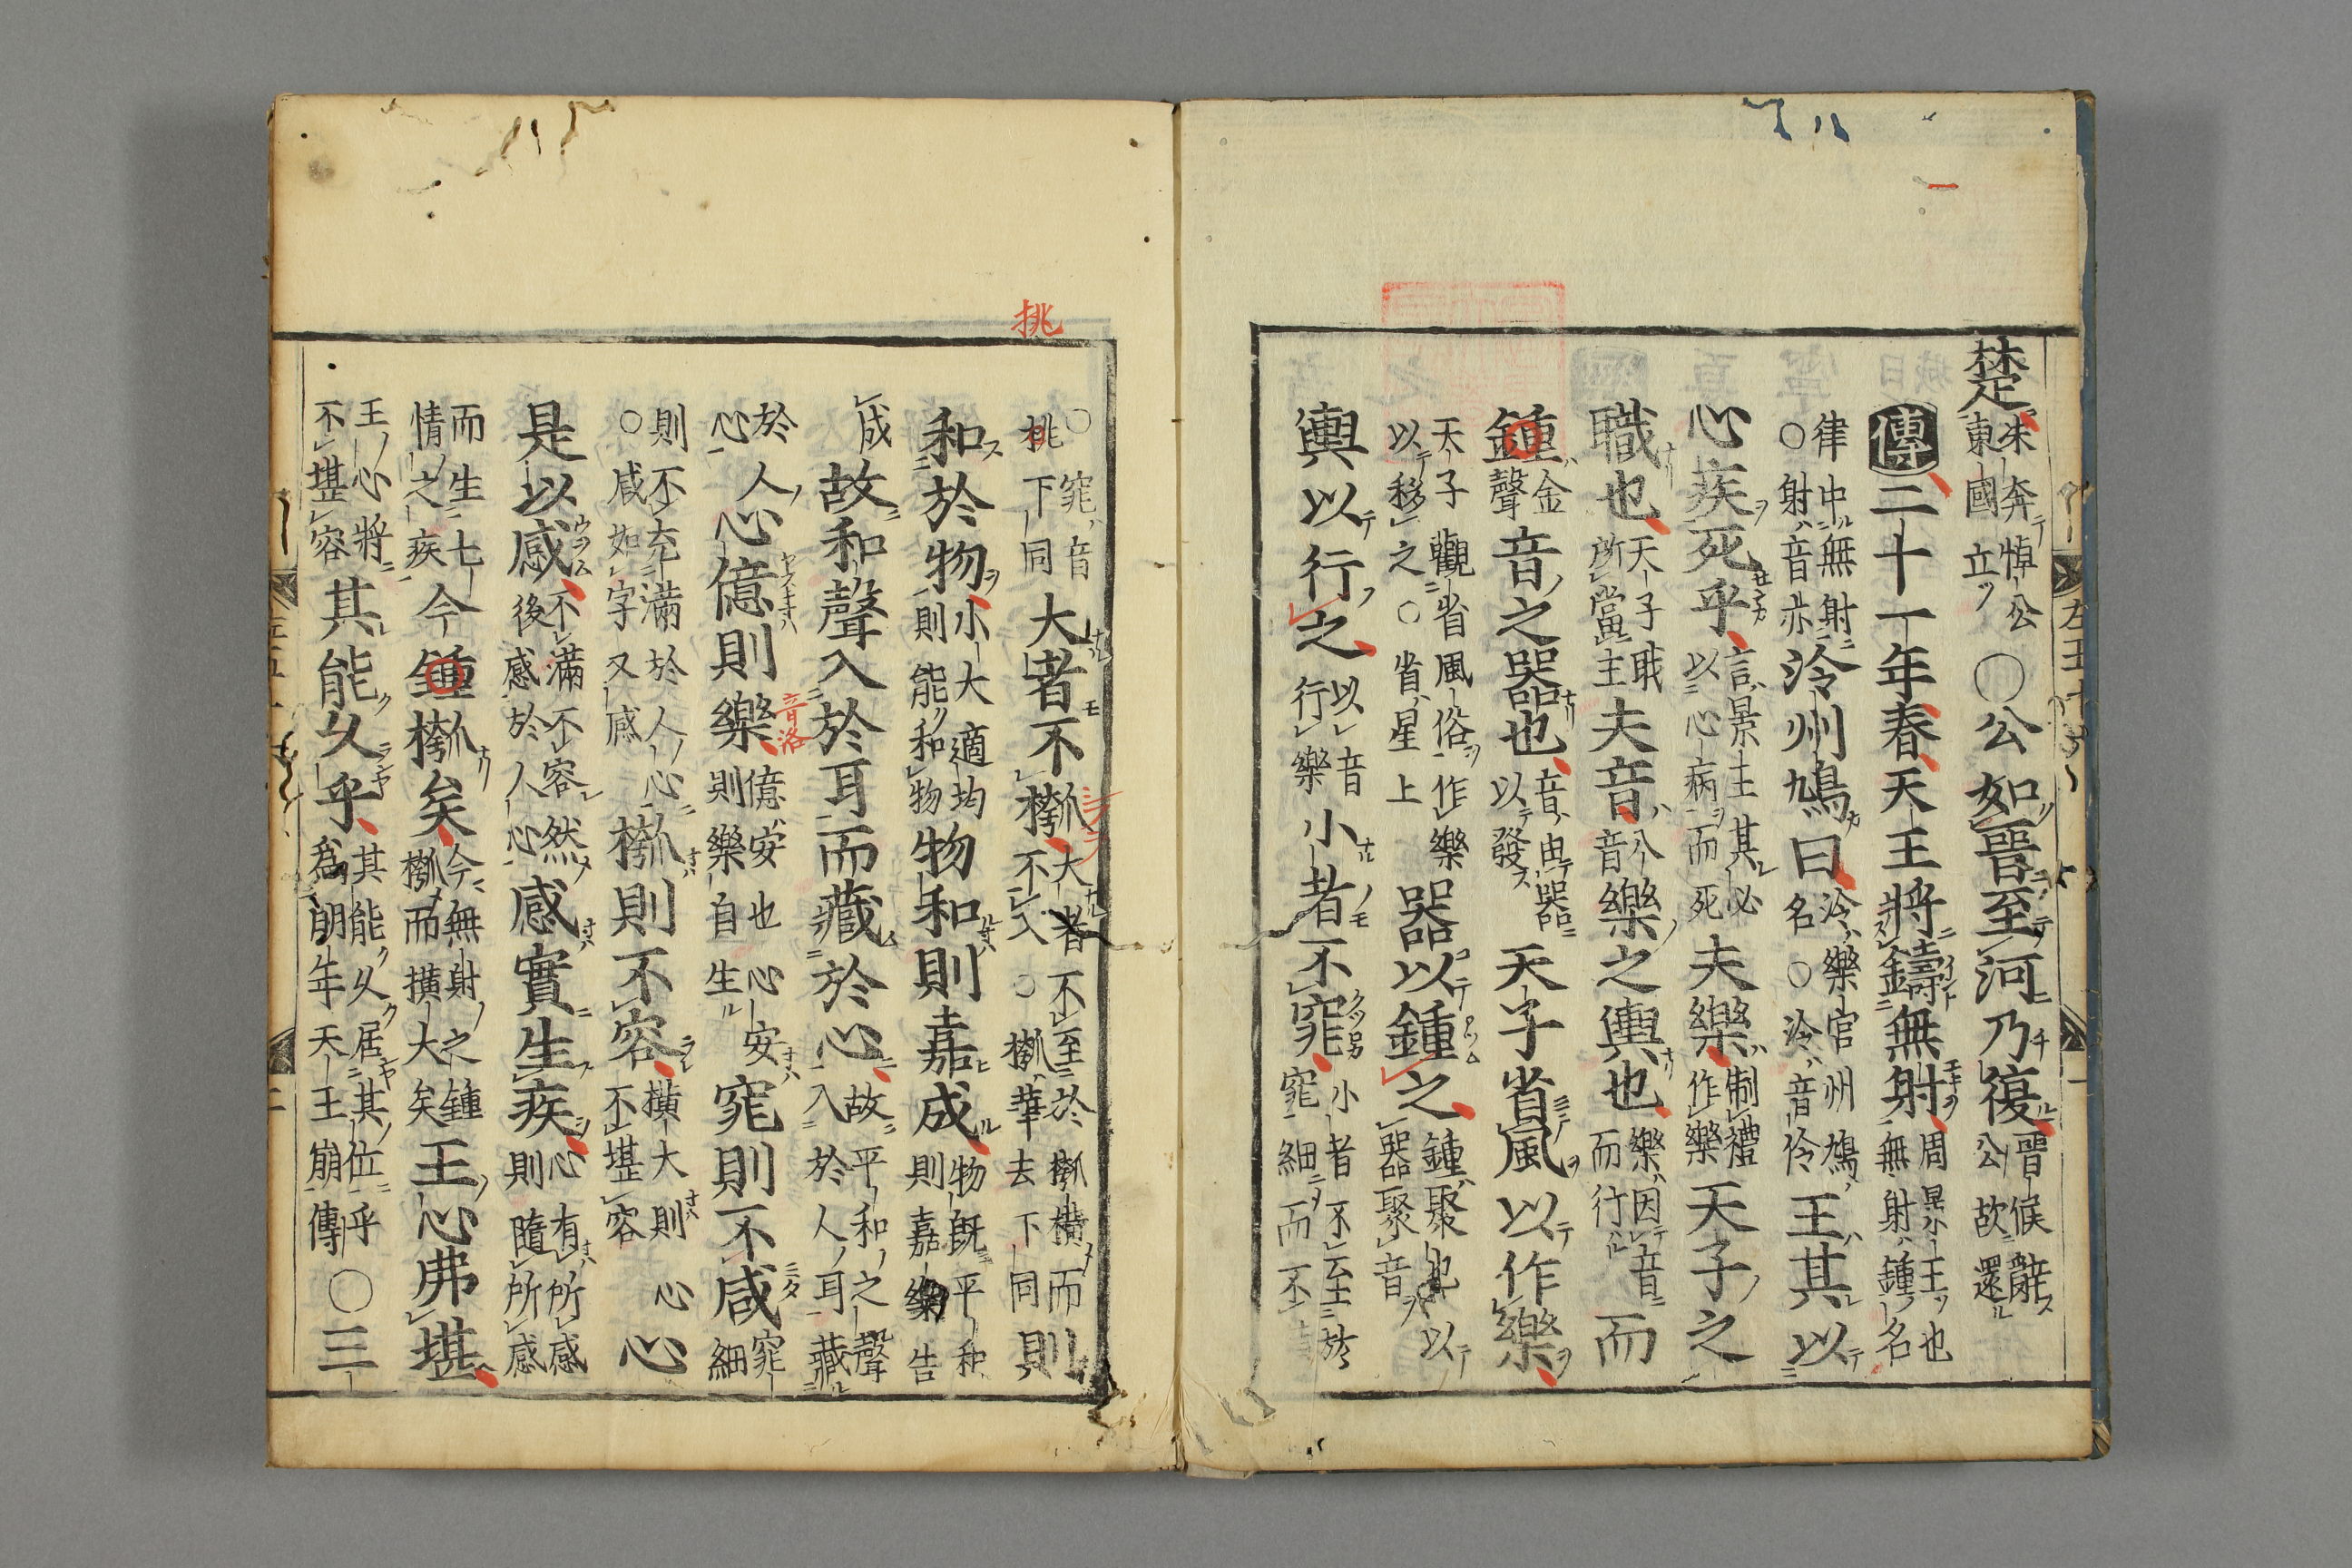 楚朱奔悼公東國立○公如晉至河乃復晉侯辭公故還
傳二十一年春天王將鑄無射周景王也無射鍾名
律中無射○射音亦泠州鳩曰泠樂官州鳩名○泠音伶王其以
心疾死乎言景王其必以心病而死夫樂制禮作樂天子之
職也天子職所當主夫音八音樂之輿也樂因音而行而
鍾金聲音之器也音由器以發天子省風以作樂
天子觀省風俗作樂以移之○省星上器以鍾之鍾聚也以器聚音
輿以行之以音行樂小者不窕小者不至於窕細而不
○窕音挑下同大者不摦大者不至於摦橫而不入○摦華去下同則
和於物小大適均則能和物物和則嘉成物既平和則嘉樂告
成故和聲入於耳而藏於心故平和之聲入於人耳藏
於心人心億則樂億安也心安則樂自生窕則不咸窕細
則不充滿於人心○咸如字又感摦則不容橫大則不堪容心心
是以感不滿不容然後感於人心感實生疾心有所感則隨所感
而生七情之疾今鍾摦矣今無射之鍾摦而橫大矣王心弗堪
王心將不堪容其能久乎其能久居其位乎爲明年天王崩傳○三
挑
音洛